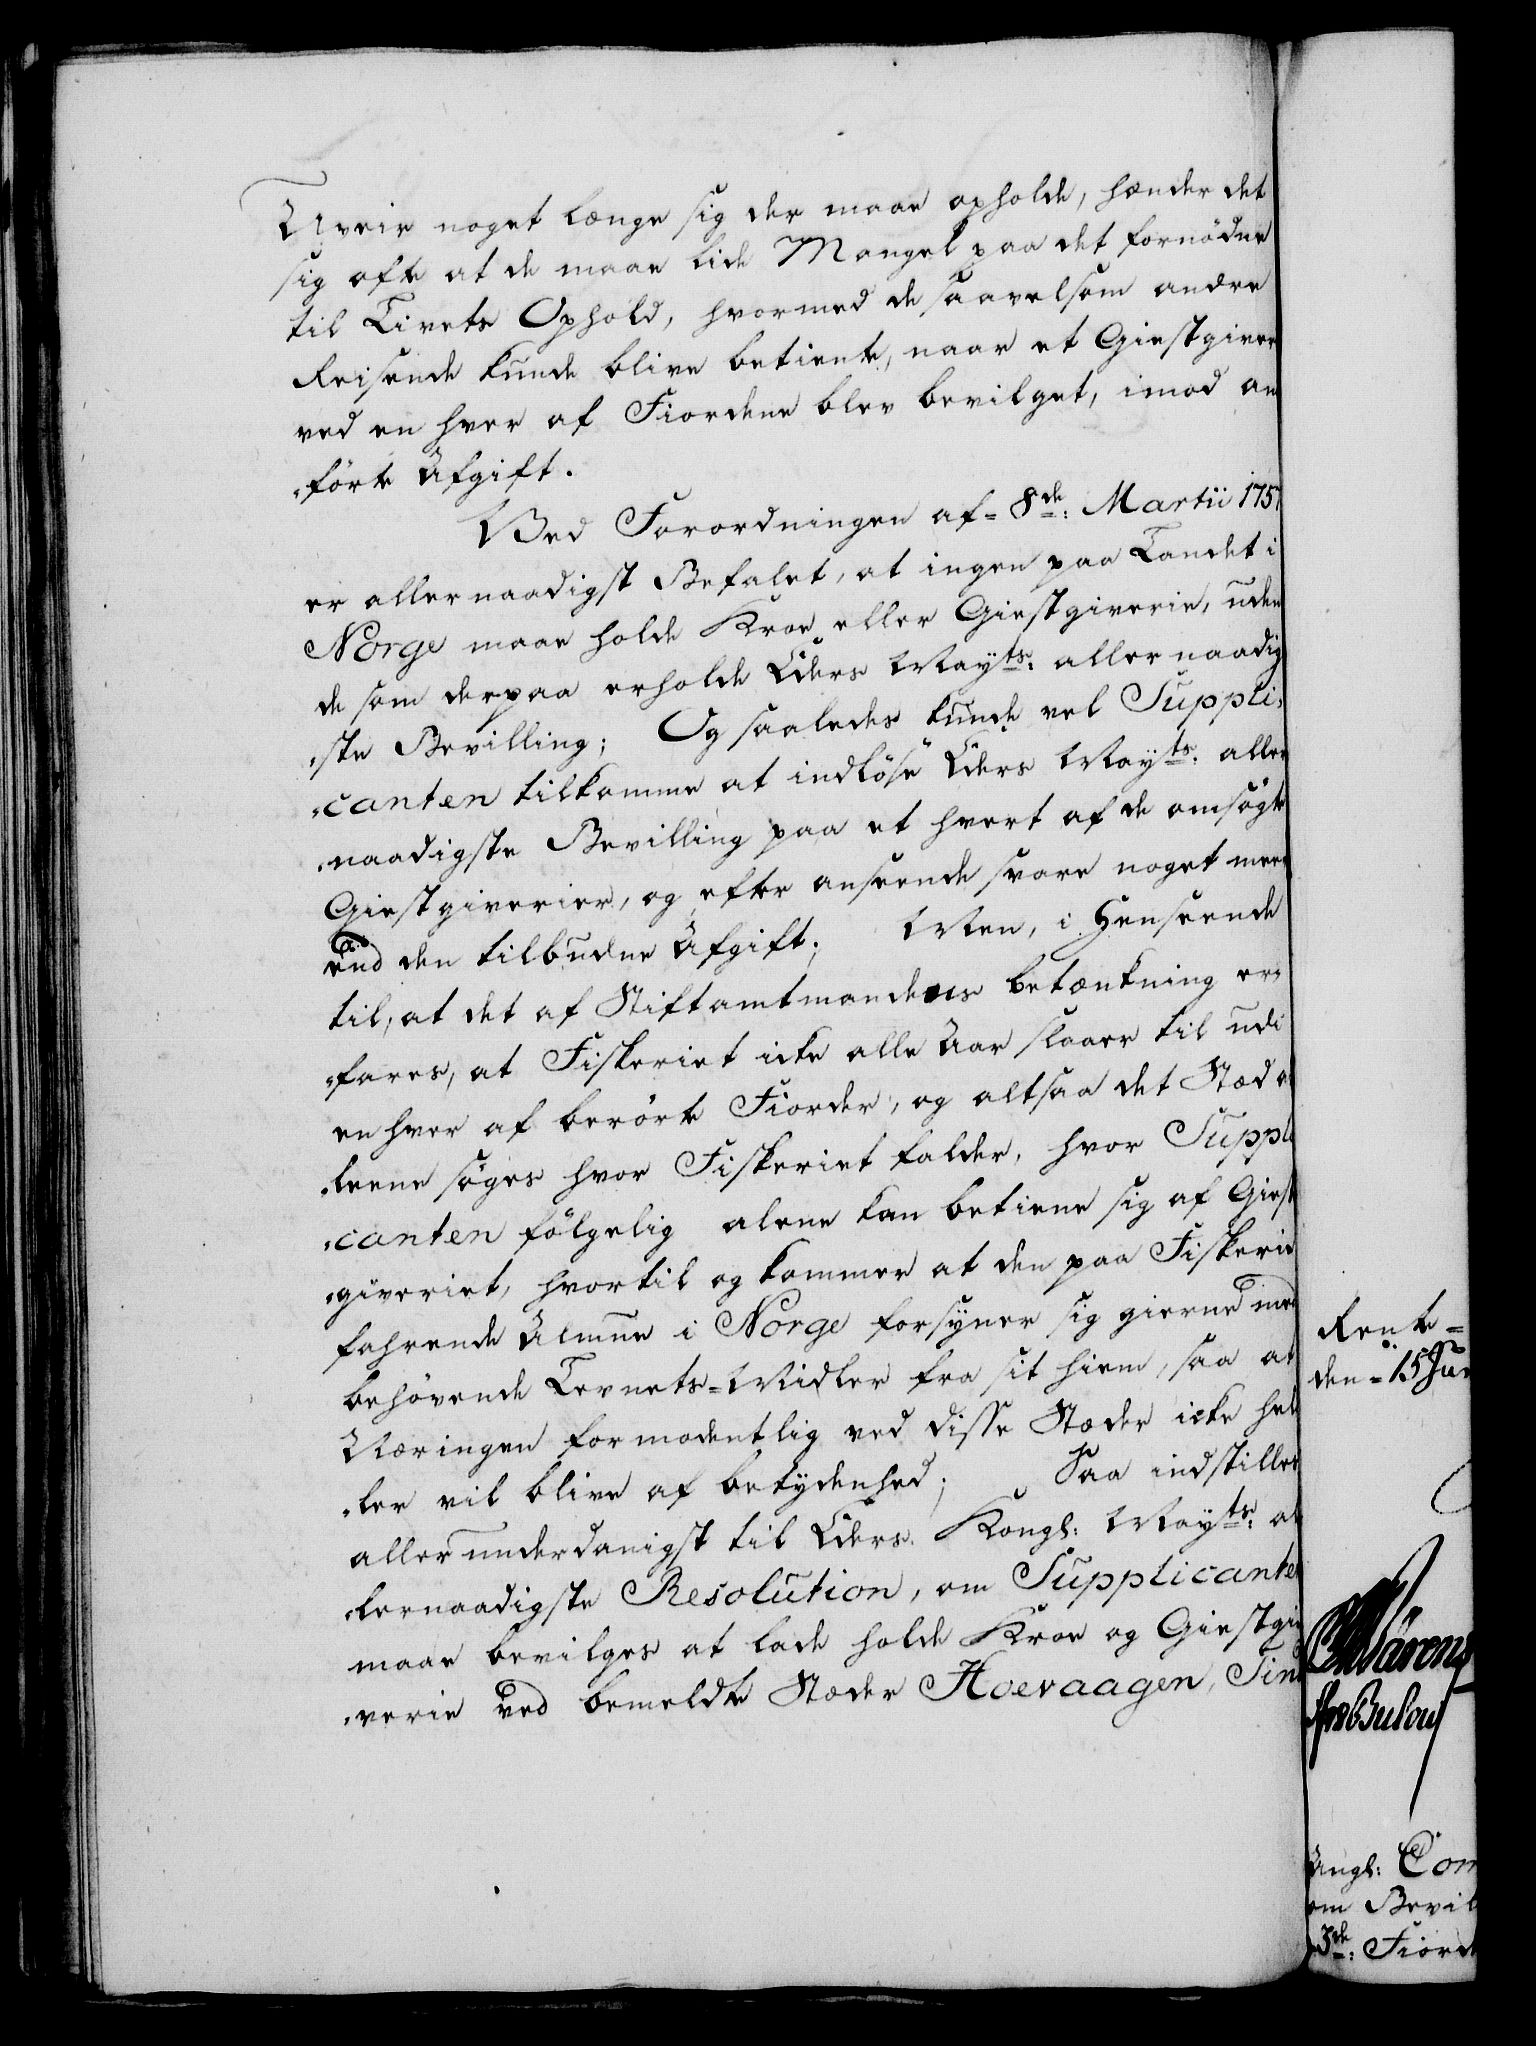 Uveir noget længe sig der maae opholde, hænder det
sig ofte at de maae lide Mangel paa det fornødne
til Livets Ophold, hvormed de saavelsom andre
Reisende kunde blive betiente, naar et Giestgiver
ved en hver af Fiordene blev bevilget, imod an
„førte Afgift.
Ved Forordningen af= 8de: Martii 1757
er allernaadigst Befalet, at ingen paa Landet i
Norge maae holde Kroe eller Giestgiverie, uden
de som derpaa erholde Eders Mayts: allernaadig
„ste Bevilling; Og saaledes kunde vel Suppli„
„canten tilkomme at indløse Eders Mayts: aller
„naadigste Bevilling paa et hvert af de omsøgte
Giestgiverier, og efter anseende svare noget mere
end den tilbudne Afgift; Men, i Henseende
til, at det af Stiftamtmandens betænkning er„
„fares, at Fiskeriet icke alle Aar slaaer til udi
en hver af berørte Fiorder, og altsaa det Stæd a
„leene søges hvor Fiskeriet falder, hvor Suppli
„canten følgelig alene kan betiene sig af Giest
„giveriet, hvortil og kommer at den paa Fiskerie
fahrende Almue i Norge forsyner sig gierne med
behøvende Levnets=Midler fra sit hiem, saa at
Næringen formodentlig ved disse Stæder icke hel
„ler vil blive af betydenhed; Saa indstilles
allerunderdanigst til Eders Kongl: Mayts: al
„lernaadigste Resolution, om Supplicanten
maae bevilges at lade holde Kroe og Giestgi
„verie ved bemeldte Stæder Hoevaagen, Sin
Rente=
den= 15 Jun
Angl: Com
om Bevil
3de: Fiord